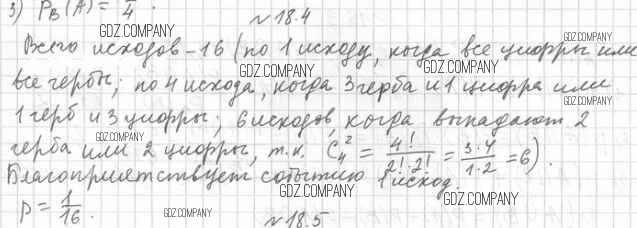 3) P_B(A) = 1/4.
№18.4
GDZ.COMPANY
GDZ.COMPANY
Всего исходов – 16 (по 1 исходу, когда все цифры или
GDZ.COMPANY
GDZ.COMPANY
все гербы; по 4 исхода, когда 3 герба и 1 цифра или
GDZ.COMPANY
1 герб и 3 цифры; 6 исходов, когда выпадают 2
GDZ.COMPANY
герба или 2 цифры, т.к. C_4^2 = 4!/(2!·2!) = 3·4/(1·2) = 6).
Благоприятствует событию 1 исход.
GDZ.COMPANY
GDZ.COMPANY
P = 1/16.
GDZ.COMPANY
№18.5